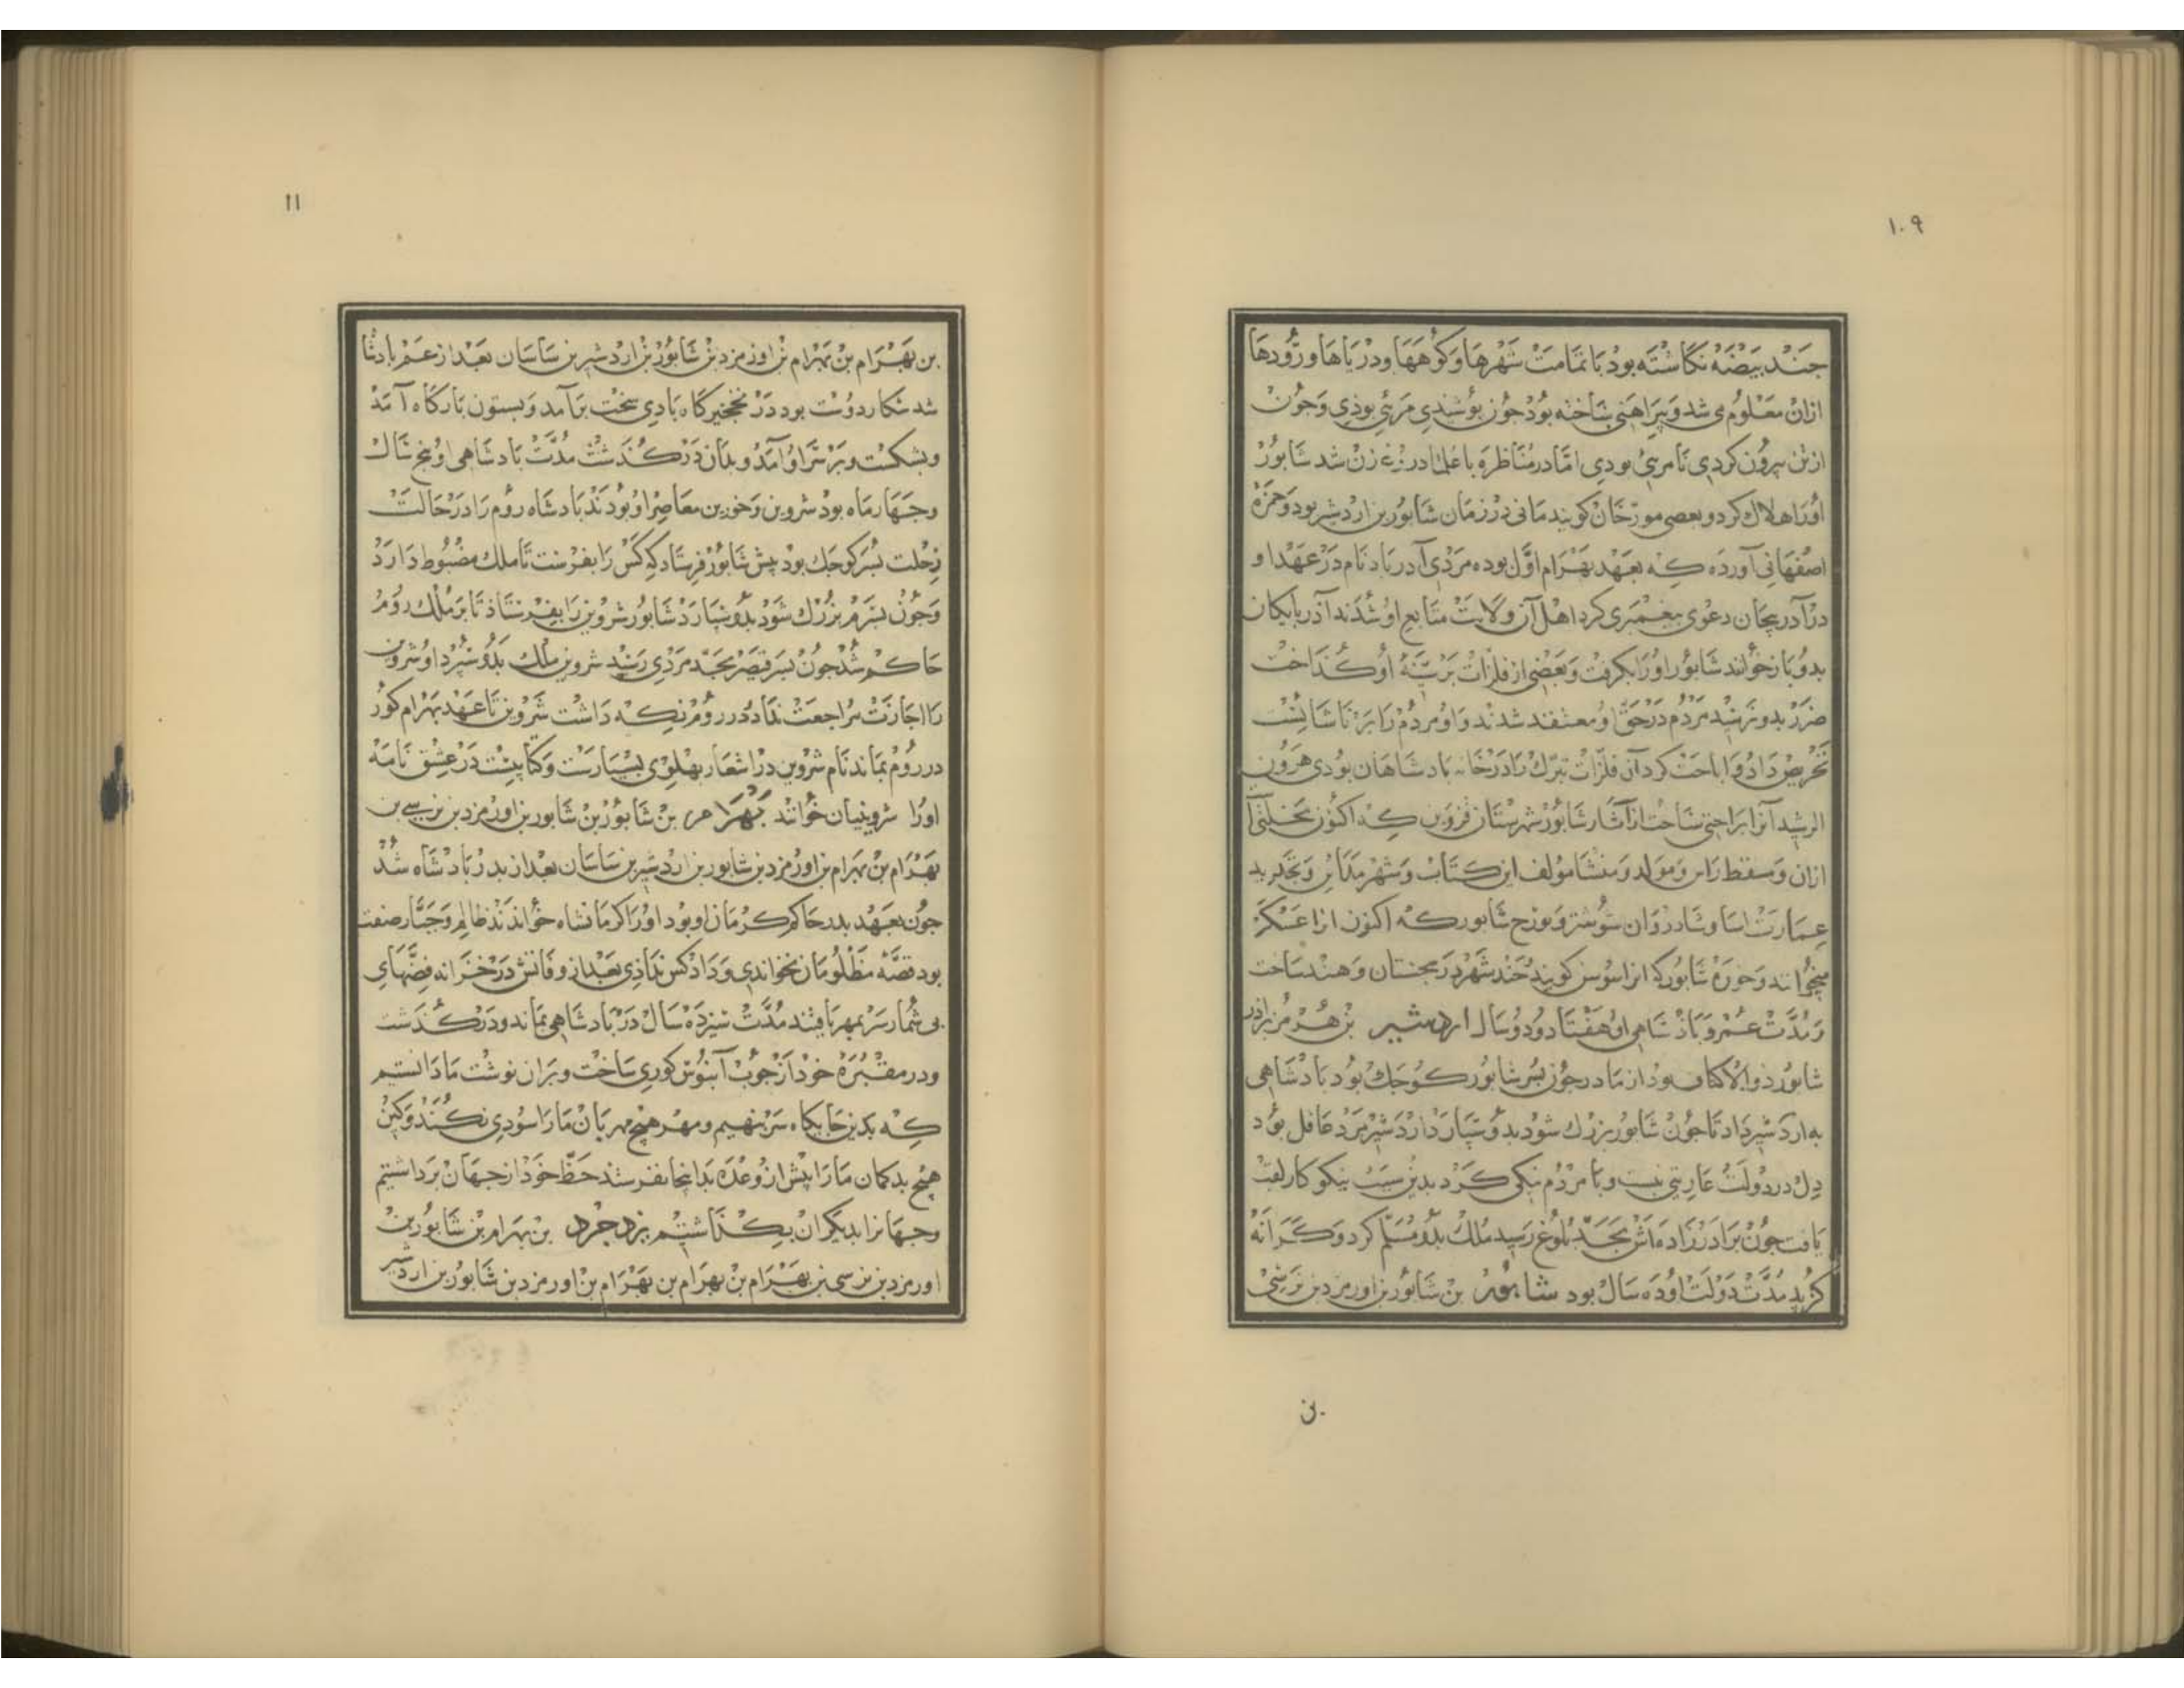 ۱۰۹
جند بیضه نکاشته بود با تمامت شهرها و کوهها و دریاها و رودها
ازان معلوم می شد و بیراهنی ساخته بود جون بوشیدی مرئی بوذی و جون
از تن بیرون کردی نامرئی بودی اما در مناظره با علما در زن شد شابور
اورا هلاک کرد و بعضی مورخان کویند مانی در زمان شابور بن اردشیر بود و حمزه
اصفهانی آورده که بعهد بهرام اول بوده مردی آدرباد نام در عهد او
در آدربیجان دعوی بیغمبری کرد اهل آن ولایت متابع او شدند آذربایکان
بدو باز خوانند شابور اورا بکرفت و بعضی از فلزات بر سینه او کداخت
ضرر بدو نرسید مردم در حق او معتقد شدند و او مردم را بر ناشایست
تحریص داد و اباحت کرد آن فلزات تبرک را در خانه بادشاهان بودی هرون
الرشید آنرا براحتی ساخت از آثار شابور شهرستان قزوین که اکنون محلتی
ازان و مسقط راس و مولد و منشا مولف این کتاب و شهر مداین و تجدید
عمارت اسا و شادروان شوشتر و بوزح شابور که اکنون انرا عسکر
میخوانند و خوره شابور که انرا سوس کویند جند شهر در سجستان و هند ساخت
و مدت عمر و باذشاهی او هفتاد و دو سال اردشیر بن هرمز برادر
شابور ذوالاکتاف بود از مادر جون بسر شابور کوجک بود بادشاهی
به اردشیر داد تا جون شابور بزرک شود بدو سپارد اردشیر مرد عاقل بود
دل در دولت عاریتی نبست و با مردم نیکی کرد بدین سبب نیکوکار لقب
یافت جون برادرزاده اش بحد بلوغ رسید ملک بدو مسلم کرد و کرانه
کزید مدت دولت او ده سال بود شابور بن شابور بن اورمزد بن نرسی
بن
۱۱
بن بهرام بن بهرام بن اورمزد بن شابور بن اردشیر بن ساسان بعد از عم بادشا
شد شکار دوست بود در نخجیرکاه بادی سخت برآمد و بستون بارکاه آمد
و بشکست و بر سر او آمد و بدان درکذشت مدت بادشاهی او بنج سال
و جهار ماه بود شروین و خورین معاصر او بودند بادشاه روم را در حالت
رحلت بسر کوجک بود بیش شابور فرستاد که کس را بفرست تا ملک مضبوط دارد
و جون بسرم بزرک شود بدو سپارد شابور شروین را بفرستاذ تا بر ملک روم
حاکم شد جون بسر قیصر بحد مردی رسید شروین ملک بدو سپرد او شروین
را اجازت مراجعت نداد در روم نکه داشت شروین تا عهد بهرام کور
در روم بماند نام شروین در اشعار بهلوی بسیارست و کتابیست در عشق نامه
اورا شروینیان خوانند بهرام بن شابور بن شابور بن اورمزد بن نرسی بن
بهرام بن بهرام بن اورمزد بن شابور بن اردشیر بن ساسان بعد از بدر بادشاه شد
جون بعهد بدر حاکم کرمان او بود اورا کرمانشاه خواندند ظالم و جبار صفت
بود قصه مظلومان نخواندی و داد کس نداذی بعد از وفاتش در خزانه قصّهای
بی شمار سر بمهر یافتند مدت سیزده سال در بادشاهی بماند و درکذشت
و در مقبره خود از جوب آبنوس کوری ساخت و بران نوشت ما دانستیم
که بدین جایکاه سر نهیم و مهر هیچ مهربان مارا سودی نکند و کین
هیج بدکمان مارا بیش از وعده بدانجا نفرستد حظ خود از جهان برداشتیم
و جهانرا بدیکران بکذاشتیم یزدجرد بن بهرام بن شابور بن
اورمزد بن نرسی بن بهرام بن بهرام بن بهرام بن اورمزد بن شابور بن اردشیر